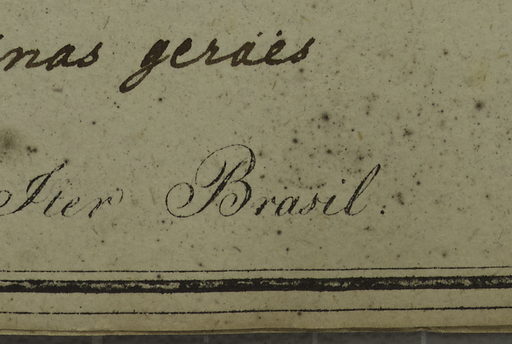 inas geraës
Iter Brasil.